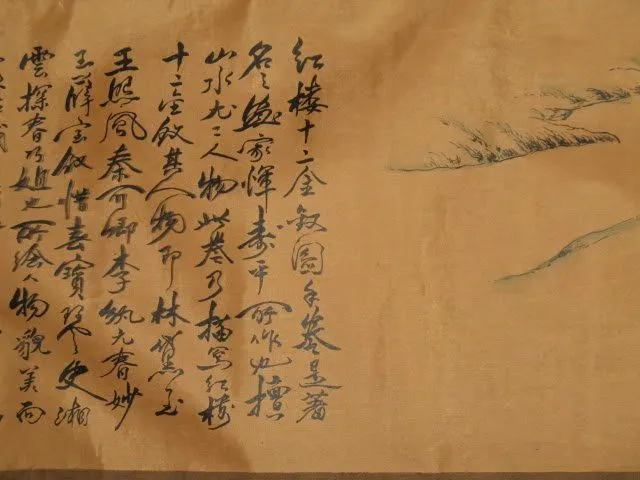 红楼十二金釵圖手卷是著
名之畫家惲壽平所作也擅
山水尤工人物此卷乃描寫红楼
十二金釵其人物即林黛玉
王熙凤秦可卿李纨元春妙
玉薛宝釵惜春寶琴史湘
雲探春巧姐也所繪人物貌美而